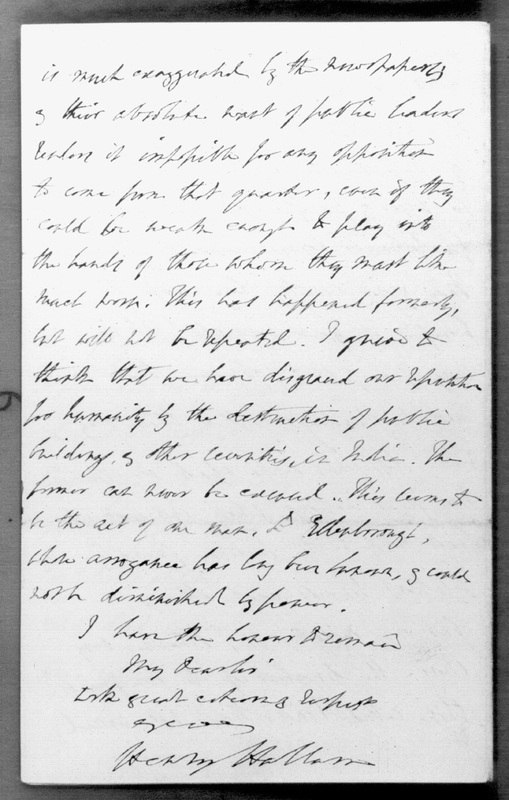 is much exaggerated by the newspapers, &
their absolute want of public leaders
renders it impossible for any opposition
to come from that quarter, even if they
could be weak enough to play into
the hands of those whom they must like
much worse. This has happened formerly,
but will not be repeated. I grieve to
think that we have disgraced our reputation
for humanity by the destruction of public
buildings, & other, in India. The
former can never be excused. This seems to
be the act of one man, Ld Ellenborough,
whose arrogance has long been known, & could
not be diminished by power.
I have the honour to remain
My dear Sir
with great esteem & respect
yours
Henry Hallam